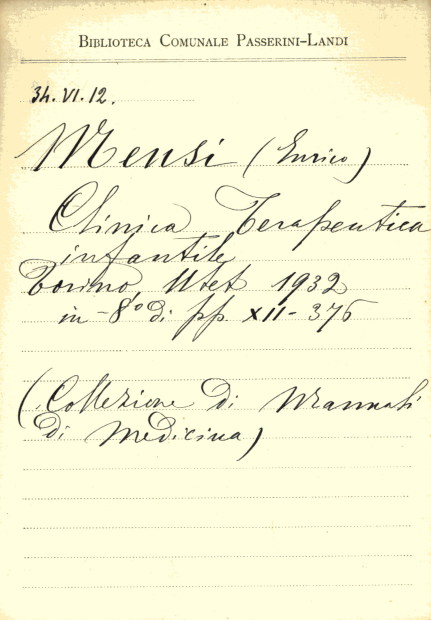 BIBLIOTECA COMUNALE PASSERINI-LANDI
34.VI.12.
Mensi (Enrico)
Clinica Terapeutica
infantile
Torino, Utet 1932
in-8º di pp. XII-376
(Collezione di Manuali
di Medicina)